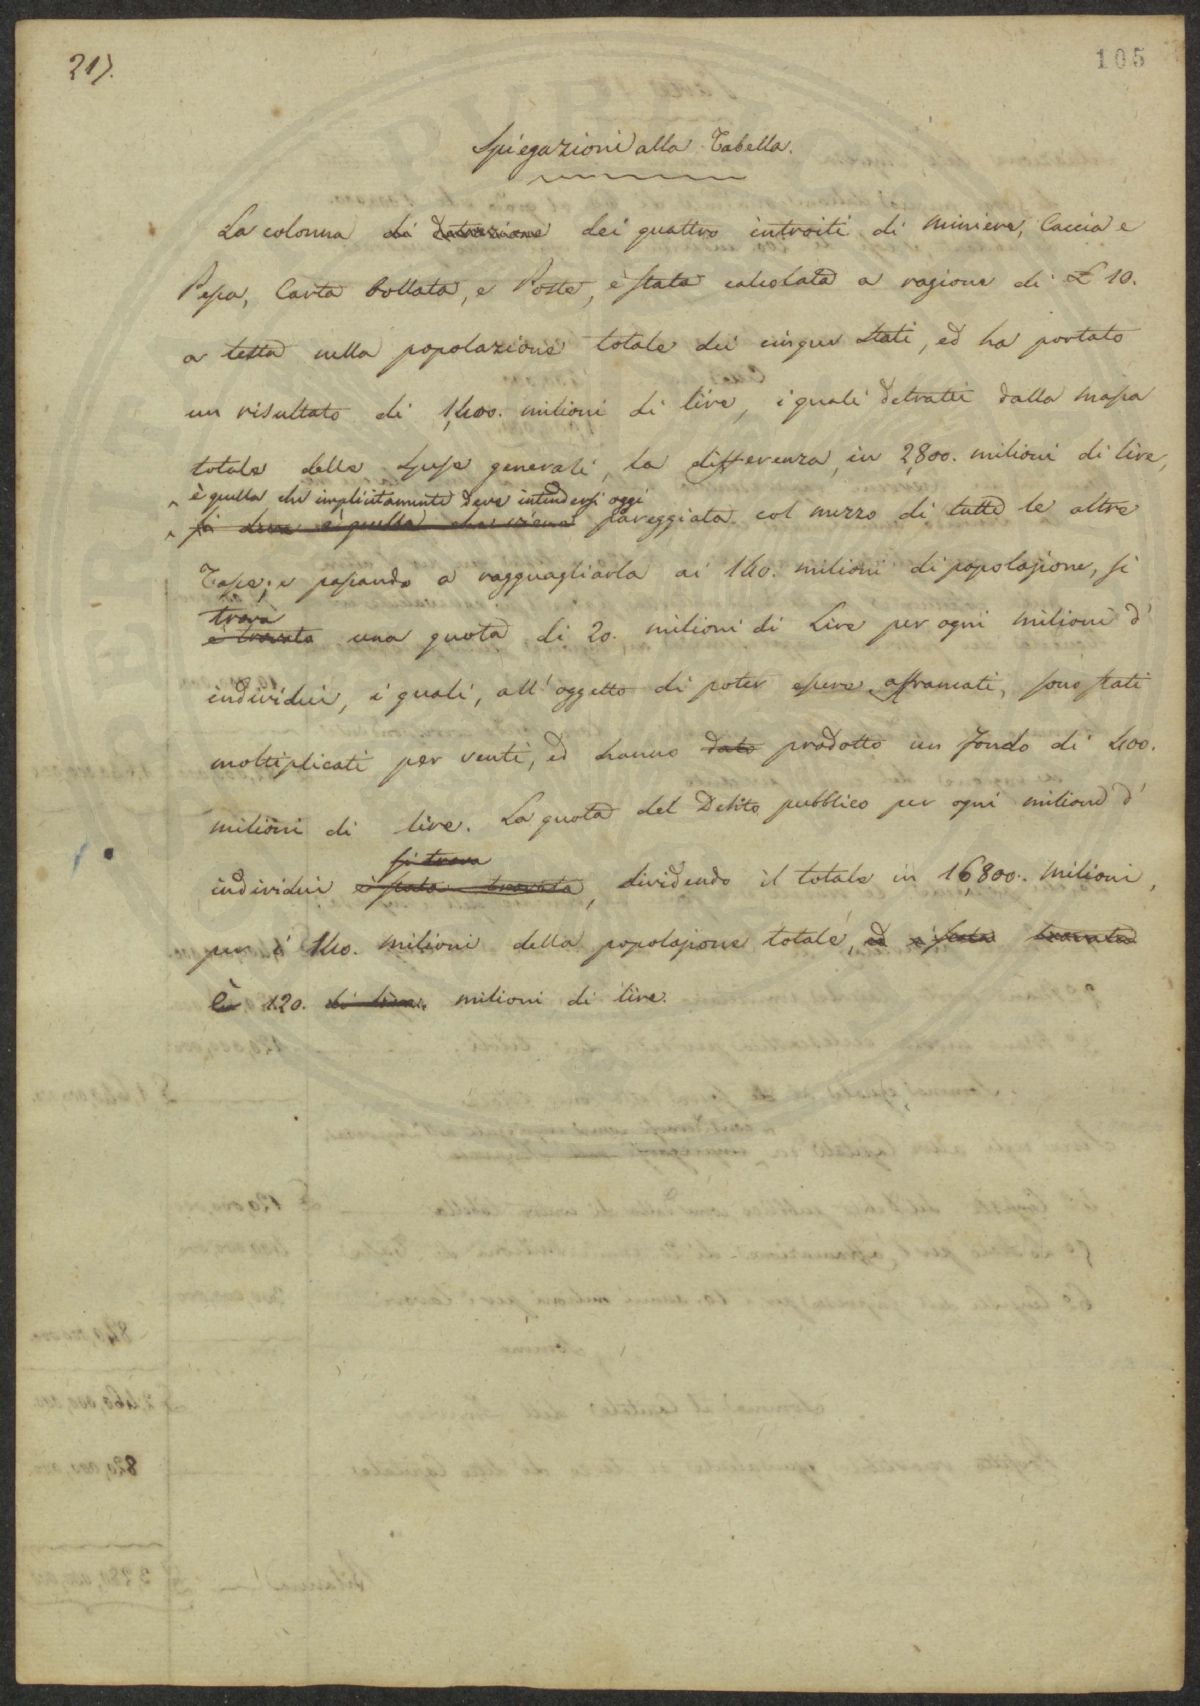 217.
105
Spiegazioni alla Tabella.
La colonna di detrazione dei quattro introiti di miniere, Caccia e
Pesca, Carta bollata, e Poste, è stata calcolata a ragione di £ 10.
a testa nella popolazione totale dei cinque Stati, ed ha portato
un risultato di 1,400. milioni di lire, i quali detratti dalla massa
totale delle spese generali, la differenza, in 2800. milioni di lire,
è quella che implicitamente deve intendersi oggi
si deve è quella che viene pareggiata col mezzo di tutte le altre
Tasse; e passando a ragguagliarla ai 140. milioni di popolazione, si
trova
è trovata una quota di 20. milioni di Lire per ogni milione d'
individui, i quali, all'oggetto di poter essere affrancati, sono stati
moltiplicati per venti, ed hanno dato prodotto un fondo di 400.
milioni di lire. La quota del Debito pubblico per ogni milione d'
si trova
individui è stata trovata, dividendo il totale in 16,800. milioni,
per i 140. milioni della popolazione totale, ed è stata trovata
è 120. di lire. milioni di lire.